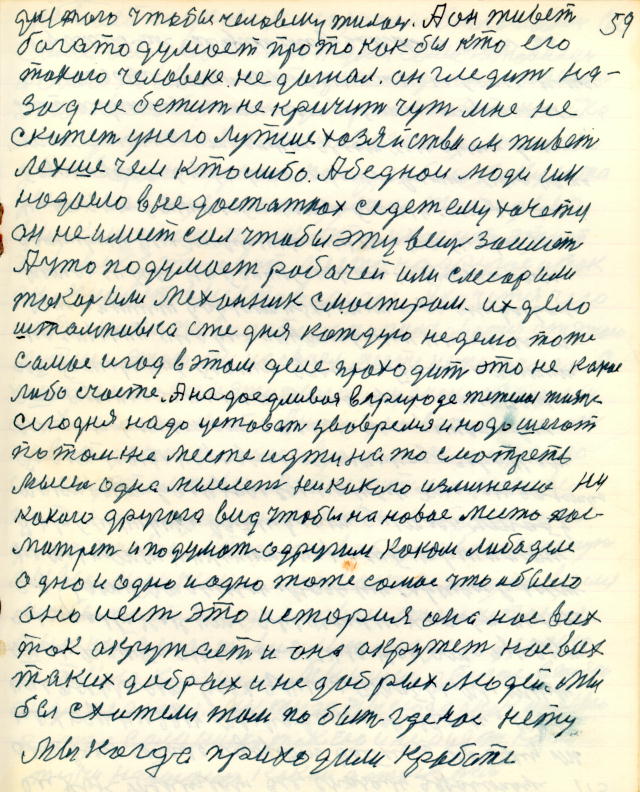 59
другого чтобы человеку жилос. А он живет
богато думает про то как бы кто его
такого человека не догнал. он гледит на-
зад не бежит не кричит чут мне не
скажет у него лутше хозяйства он живет
лехше чем кто либо. А бедной люди им
надоело в недостатках седет ему хочетц
он не имеет сил чтобы эту вещ зашет
А што подумает рабачей или слесар или
токар или механник с мастерам. их дело
штамповка сиге дня каждую неделю тоже
самое и год в этом деле проходит это не какое
либо счасте. А надоедливоя в природе тежелоя
сегодня надо устават у вовремя и надо шегат
по том же месте идти на то смотреть
мысл одна мыслет никокого изминения ни
какого другога вид чтобы на новое место
матрет и подумат о другим каком либо деле
одно и одно и одно тоже самое что и было
оно иест это история она нас вих
так окружает и она окружет нас вих
таких добрых и не добрых людей. Мы
бы схотели там побыт где нас нету
Мы когда приходим к работе